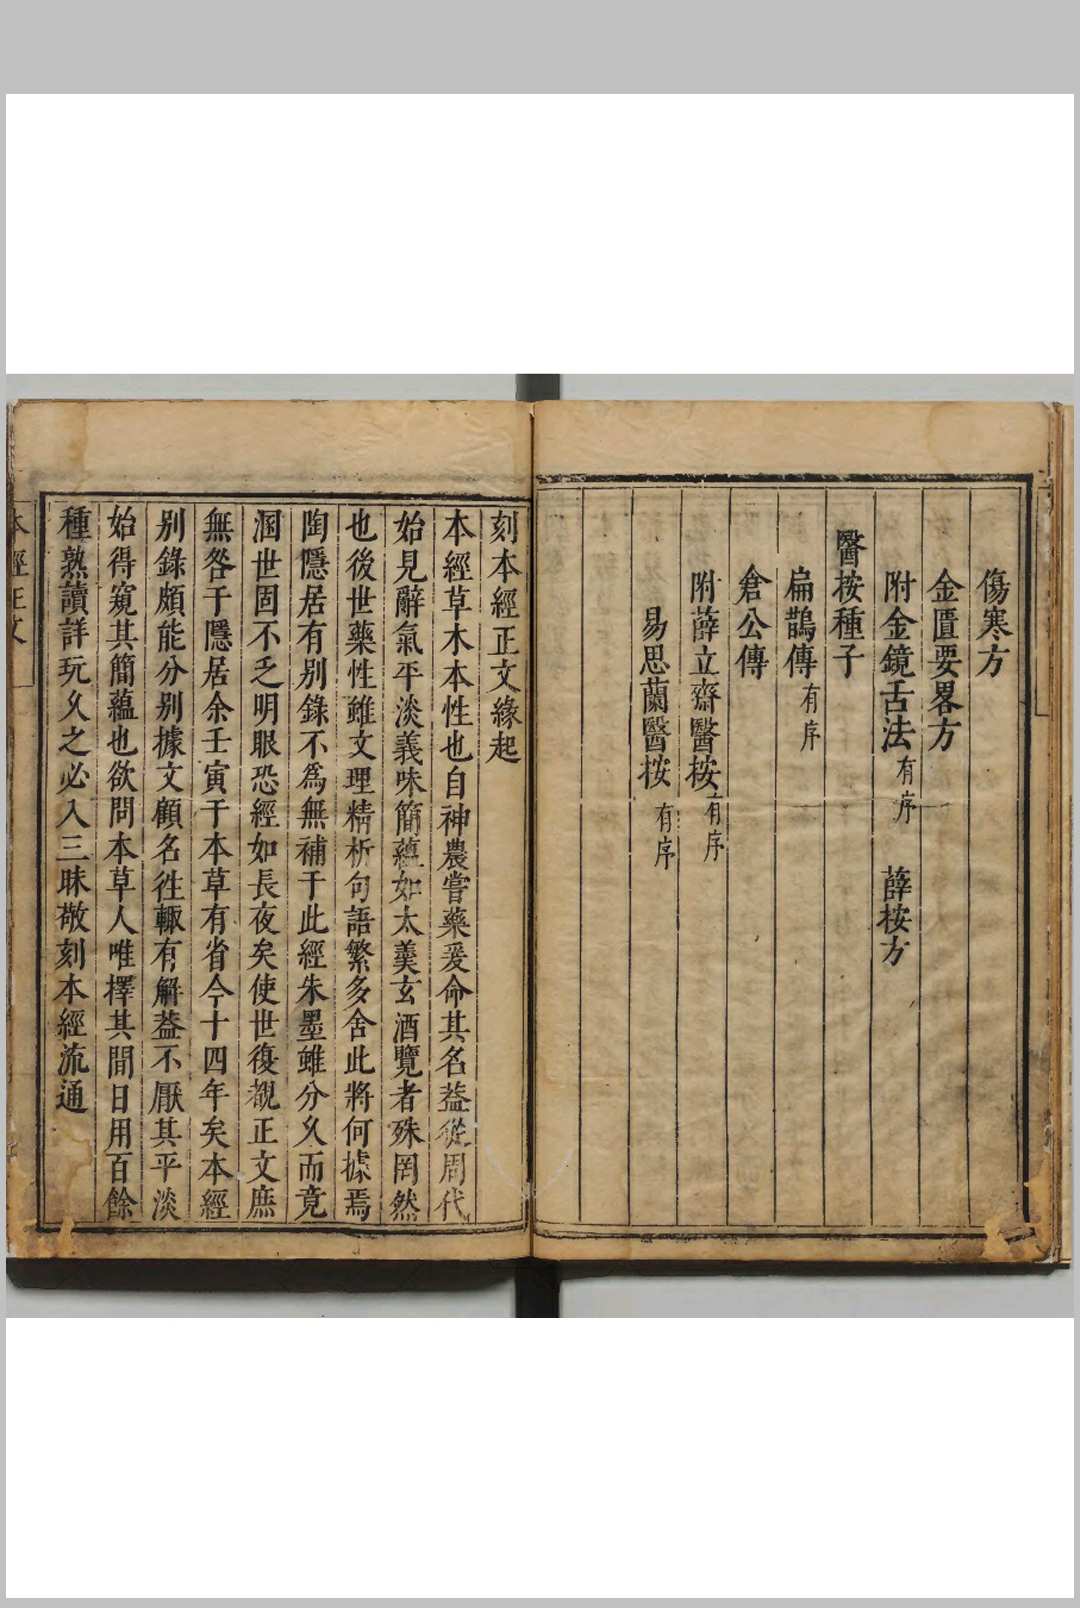 傷寒方
金匱要畧方
附金鏡舌法有序 薛按方
醫按種子
扁鵲傳有序
倉公傳
附薛立齋醫按有序
易思蘭醫按有序
刻本經正文緣起
本經草木本性也自神農嘗藥爰命其名葢從周代
始見辭氣平淡義味簡蘊如太羹玄酒覽者殊罔然
也後世藥性雖文理精析句語繁多舍此將何據焉
陶隱居有别錄不爲無補于此經朱墨雖分久而竟
溷世固不乏明眼恐經如長夜矣使世復覩正文庶
無咎于隱居余壬寅于本草有省今十四年矣本經
别錄頗能分别據文顧名徃輙有解葢不厭其平淡
始得窺其簡蘊也欲問本草人唯擇其間日用百餘
種熟讀詳玩久之必入三昧敬刻本經流通
本經正文